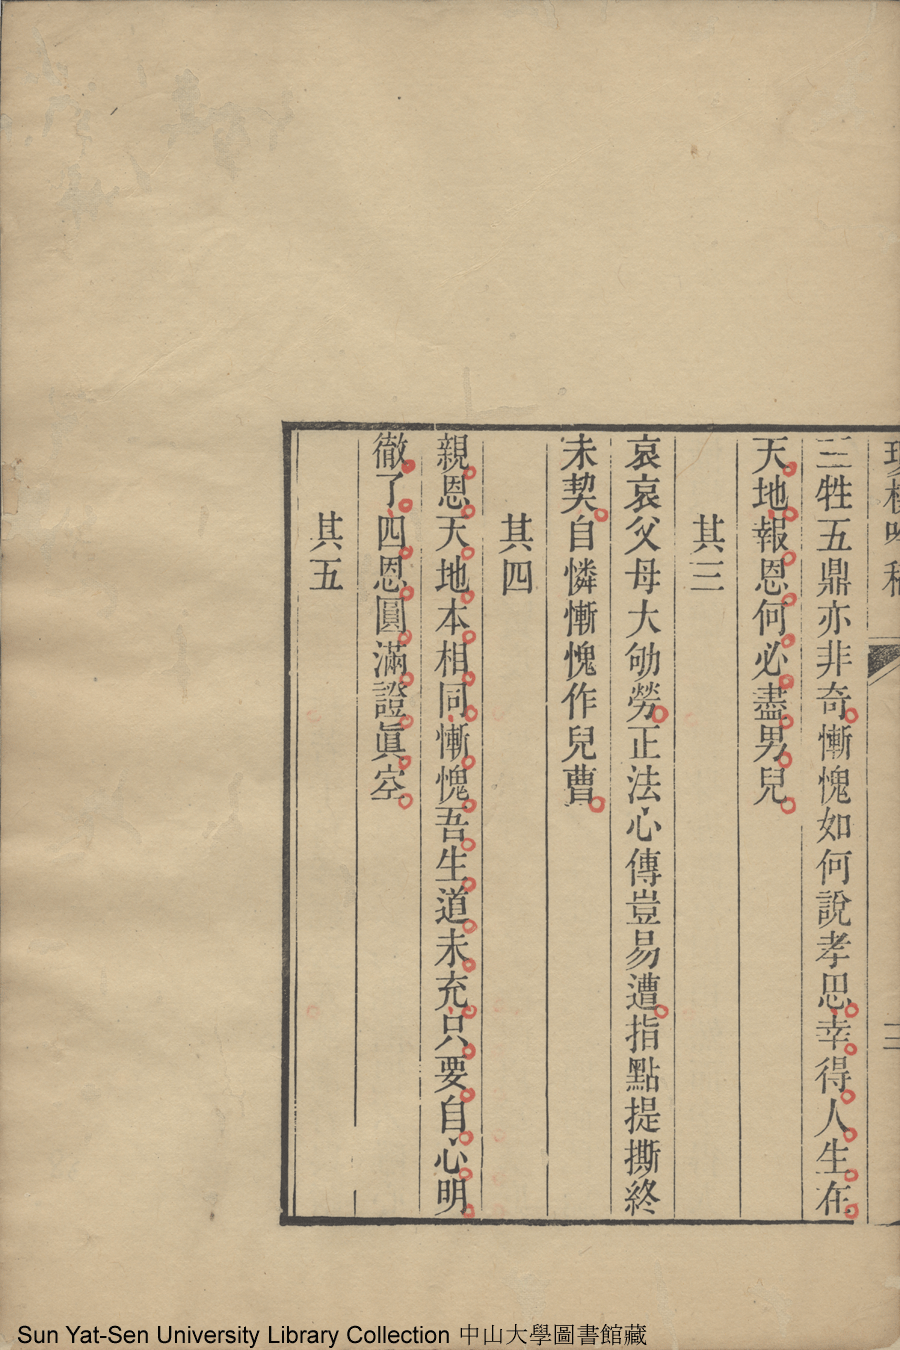 三牲五鼎亦非奇慚愧如何說孝思幸得人生在
天地報恩何必盡男兒
其三
哀哀父母大劬勞正法心傳豈易遭指點提撕終
未契自憐慚愧作兒曹
其四
親恩天地本相同慚愧吾生道未充只要自心明
徹了四恩圓滿證眞空
其五
Sun Yat-Sen University Library Collection 中山大學圖書館藏